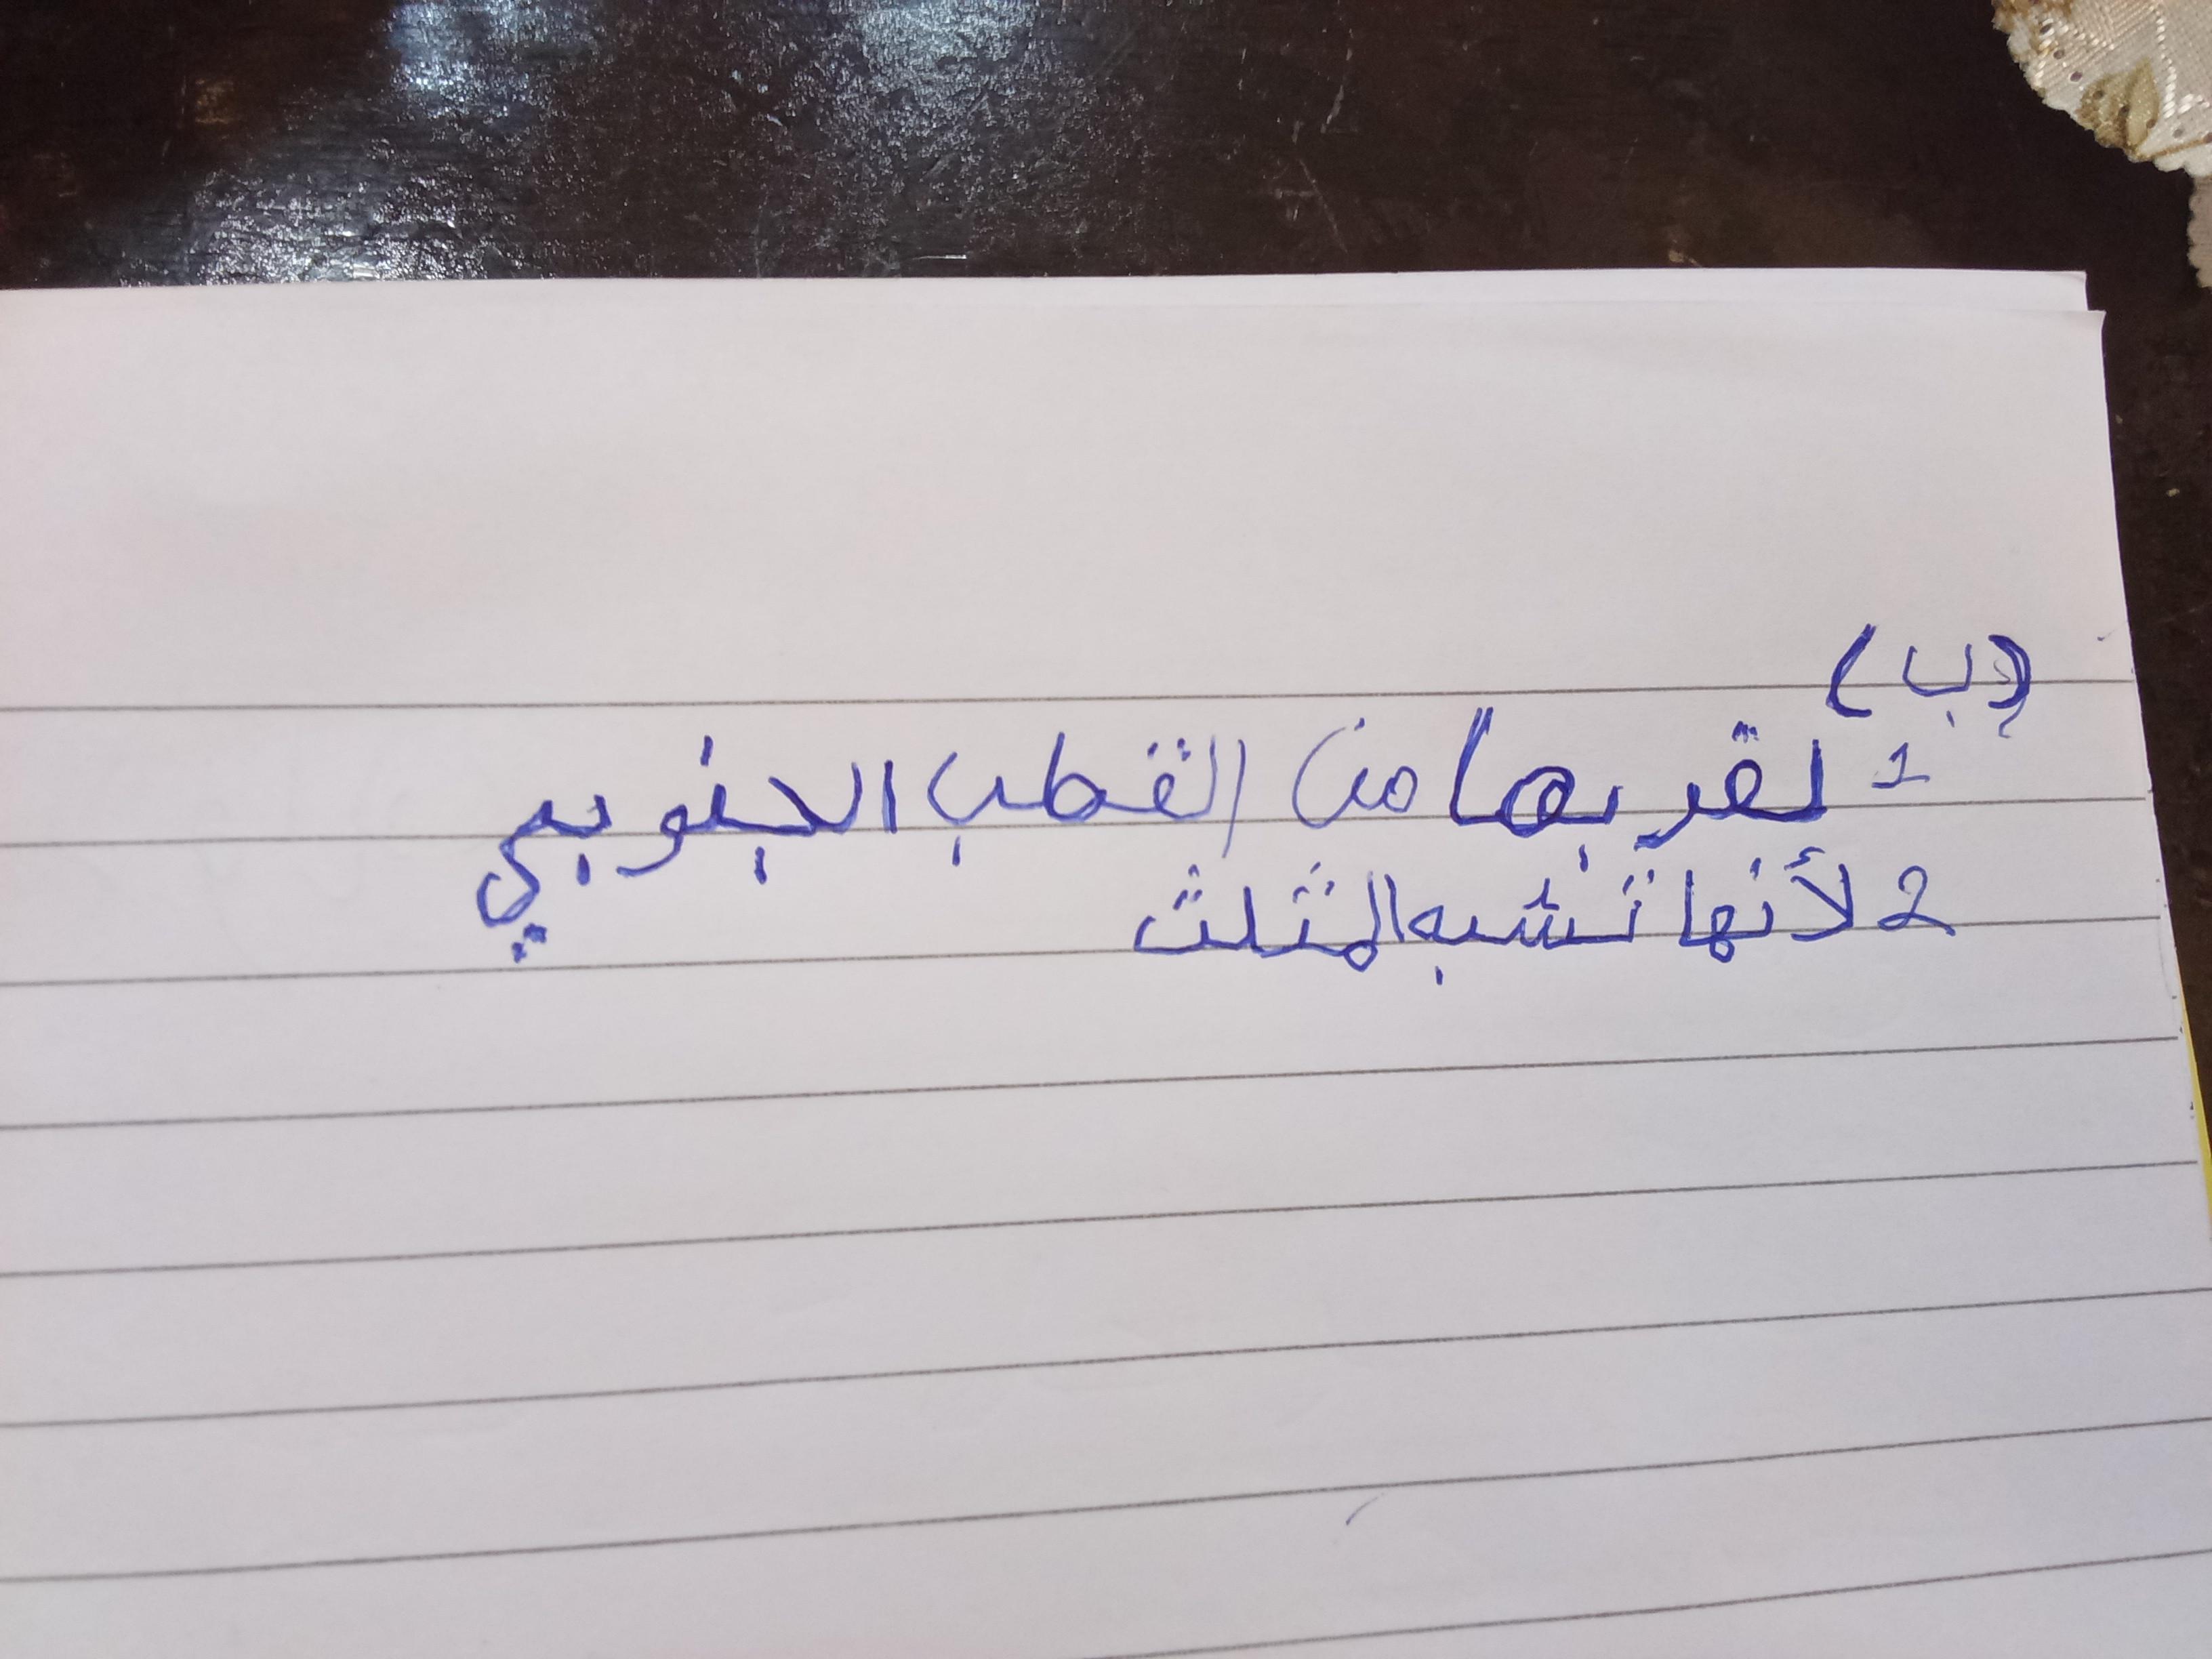 (ب)
1 لقربها من القطب الجنوبي
2 لأنها تشبه المثلث